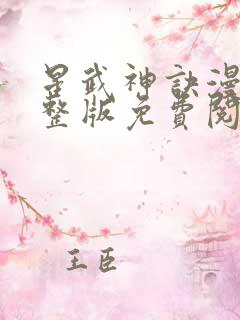 星武神訣漫
整版免費閱
王臣